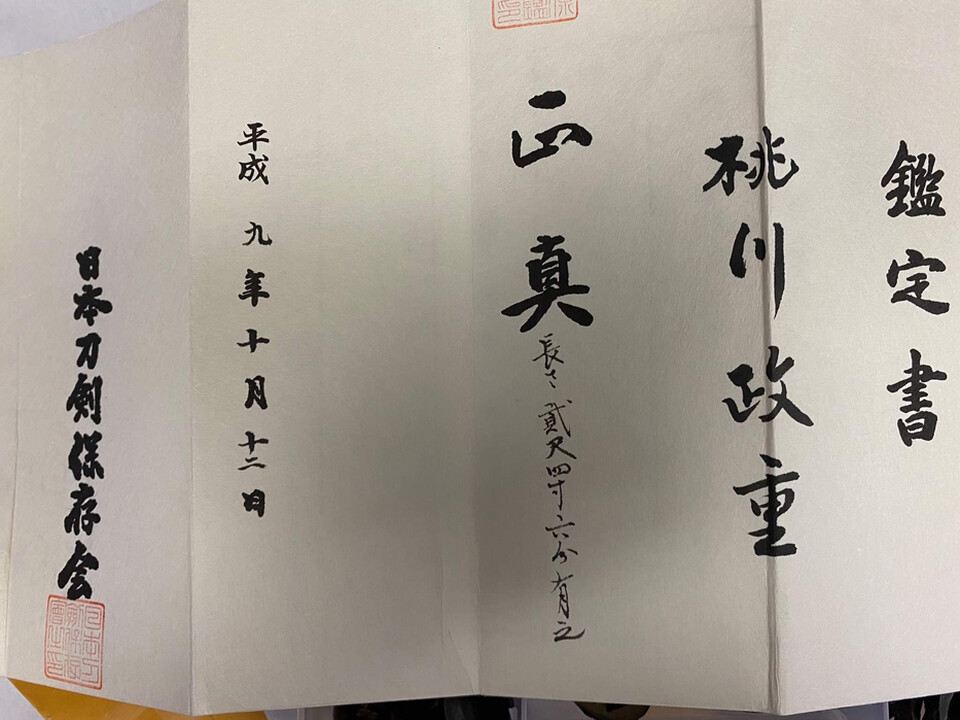 鑑定書
桃川政重
正真
長さ貳尺四寸六分有之
平成九年十月十二日
日本刀剣保存会